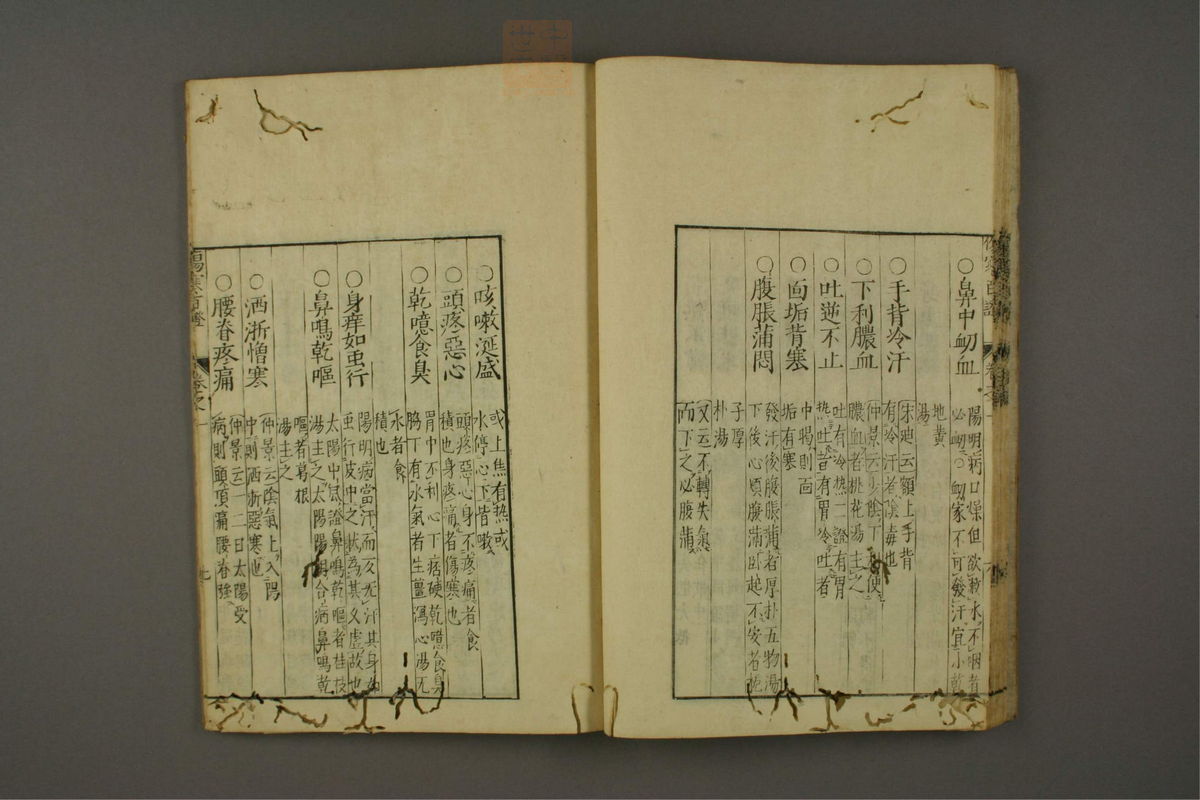 ○鼻中衂血
陽明病口燥但欲漱水不咽者
必衂○衂家不可發汗宜小乾
地黄
湯
○手背冷汗
宋迪云額上手背
有冷汗者陰毒也
○下利膿血
仲景云少陰下利便
膿血者桃花湯主之
○吐逆不止
吐有冷热二證有胃
热吐者有胃冷吐者
○面垢背寒
中暍則面
垢有寒
○腹脹満悶
發汗後腹脹蒲者厚朴五物湯
下後心煩腹蒲卧起不安者
子厚
朴湯
又云不轉失氣
而下之必腹蒲
○咳嗽涎盛
或上焦有热或
水停心下皆嗽
○頭疼惡心
頭疼惡心身不疼痛者食
積也身疼痛者傷寒也
○乾噫食臭
胃中不利心下痞硬乾噫食臭
脇下有水氣者生薑瀉心湯无
水者食
積也
○身痒如虫行
陽明病當汗而反无汗其身如
虫行皮中之狀為其久虚故也
○鼻鳴乾嘔
太陽中風證鼻鳴乾嘔者桂枝
湯主之太陽陽明合病鼻鳴乾
嘔者葛根
湯主之
○洒淅憎寒
仲景云陰氣上入陽
中則洒淅惡寒也
○腰脊疼痛
仲景云一二日太陽受
病則頭頂痛腰脊強
傷寒百證